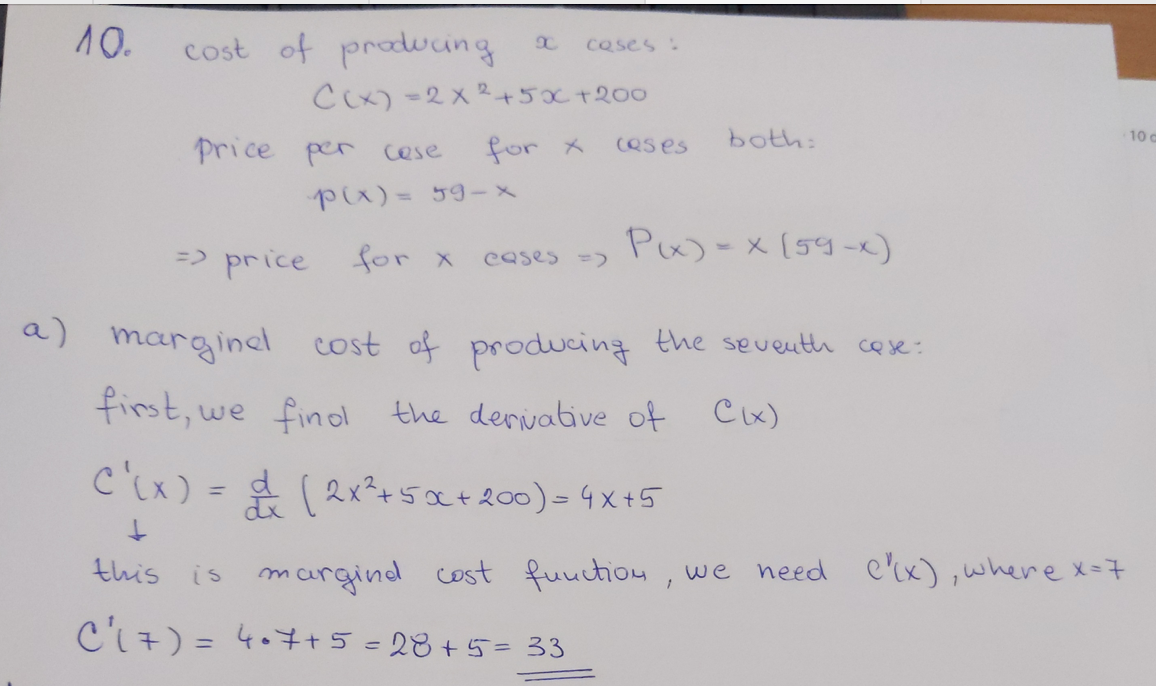 10. cost of producing x cases:
C(x) = 2x²+5x+200
price per case for x cases both:
p(x) = 59-x
=> price for x cases => P(x) = x(59-x)
a) marginal cost of producing the seventh case:
first, we find the derivative of C(x)
C'(x) = d/dx (2x²+5x+200) = 4x+5
↓
this is marginal cost function, we need C'(x), where x=7
C'(7) = 4•7+5 = 28+5 = 33
10